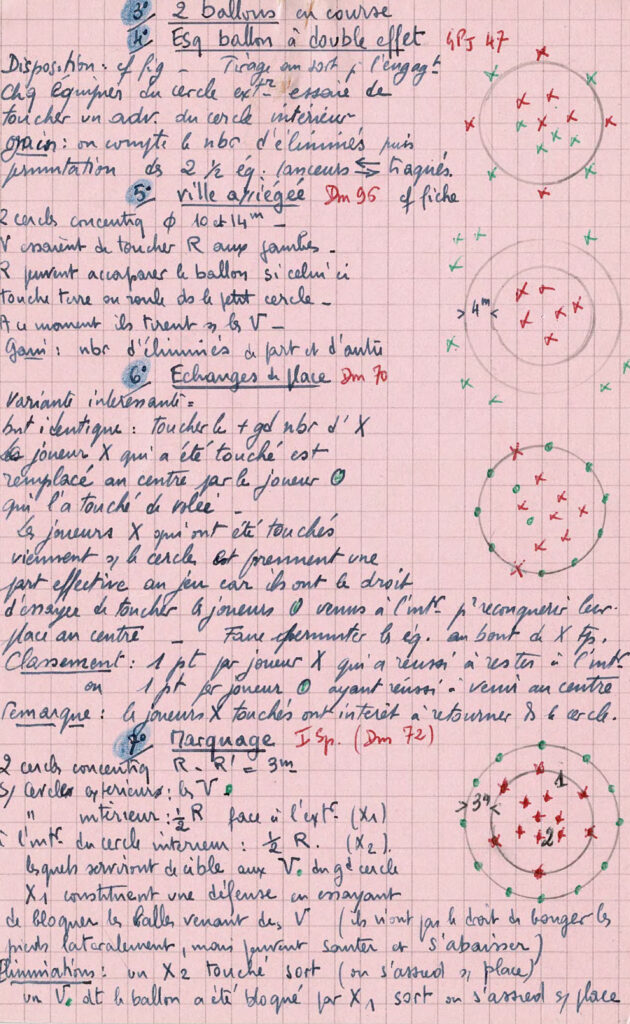 3° 2 ballons en course
4° Esq ballon à double effet GPJ 47
Disposition : cf fig _ Tirage au sort pr l'engagt
Chq équipier du cercle extr essaie de
toucher un adv. du cercle intérieur
gain : on compte le nbr d'éliminés puis
permutation des 2 ½ éq. lanceurs ⇆ traqués.
5° ville assiégée Dm 96 cf fiche
2 cercles concentriq φ 10 et 14m _
V essaient de toucher R aux jambes _
R peuvent accaparer le ballon si celui ci
touche terre ou roule ds le petit cercle _
A ce moment ils tirent s/ les V _
Gain : nbr d'éliminés de part et d'autre
> 4m <
6° Echanges de place Dm 70
Variante intéressante =
but identique : toucher le + gd nbr d' X
joueur X qui a été touché est
remplacé au centre par le joueur O
qui l'a touché de volée _
Les joueurs X qui ont été touchés
viennent s/ le cercle et prennent une
part effective au jeu car ils ont le droit
d'essayer de toucher les joueurs O venus à l'intr pr reconquérir leur
place au centre _ Faire permuter les éq. au bout de X Tp.
Classement : 1 pt par joueur X qui a réussi à rester à l'intr
ou 1 pt par joueur O ayant réussi à venir au centre
remarque : les joueurs X touchés ont intérêt à retourner ds le cercle.
7° Marquage I Sp. (Dm 72)
2 cercles concentriq R - R' = 3m
S/ cercle extérieur : les V.
" intérieur : ½ R face à l'extr (X1)
à l'intr du cercle intérieur : ½ R. (X2).
lesquels serviront de cible aux V. du gd cercle
X1 constituent une défense en essayant
de bloquer les balles venant des V (ils n'ont pas le droit de bouger les
pieds latéralement, mais peuvent sauter et s'abaisser)
> 3m <
1
2
Eliminations : un X2 touché sort (ou s'assied s/ place)
un V. dt le ballon a été bloqué par X1 sort ou s'assied s/ place